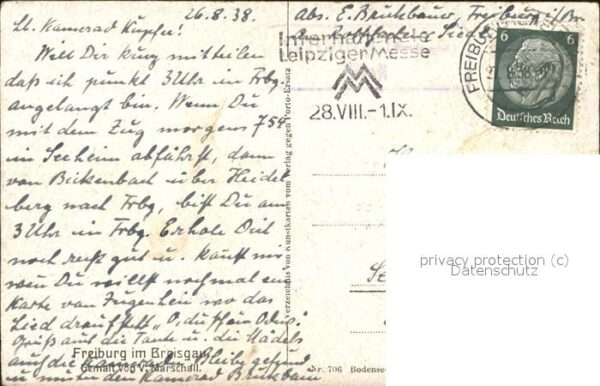 26.8.38.
Lb. Kamerad Küpfer!
Will Dir kurz mitteilen
daß ich punkt 3 Uhr in Frbg.
angelangt bin. Wenn Du
mit dem Zug morgens 7 54
in Seeheim abfährst, dann
von Bickenbach über Heidel
berg nach Frbg, bist Du um
3 Uhr in Frbg. Erhole Dich
noch recht gut u. kauft mir
wenn Du willst nochmal eine
Karte von Jugenheim wo das
Lied drauf steht "O, du
Gruß aus die Tante u. die Mädels
auf die Bleibe gesund
u. munter dein Kamerad Brükbau
Freiburg im Breisgau
Gemalt von V. Marschall.
Verzeichnis von Kunstkarten vom Verlag gegen Porto-Ersatz
Abs. E. Brükbauer, Freiburg i/Br.
Siedl
Internationale
Leipziger Messe
28.VIII.-1.IX.
FREIBU
8.38
6 6
Deutsches Reich
privacy protection (c)
Datenschutz
Nr. 706 Bodensee